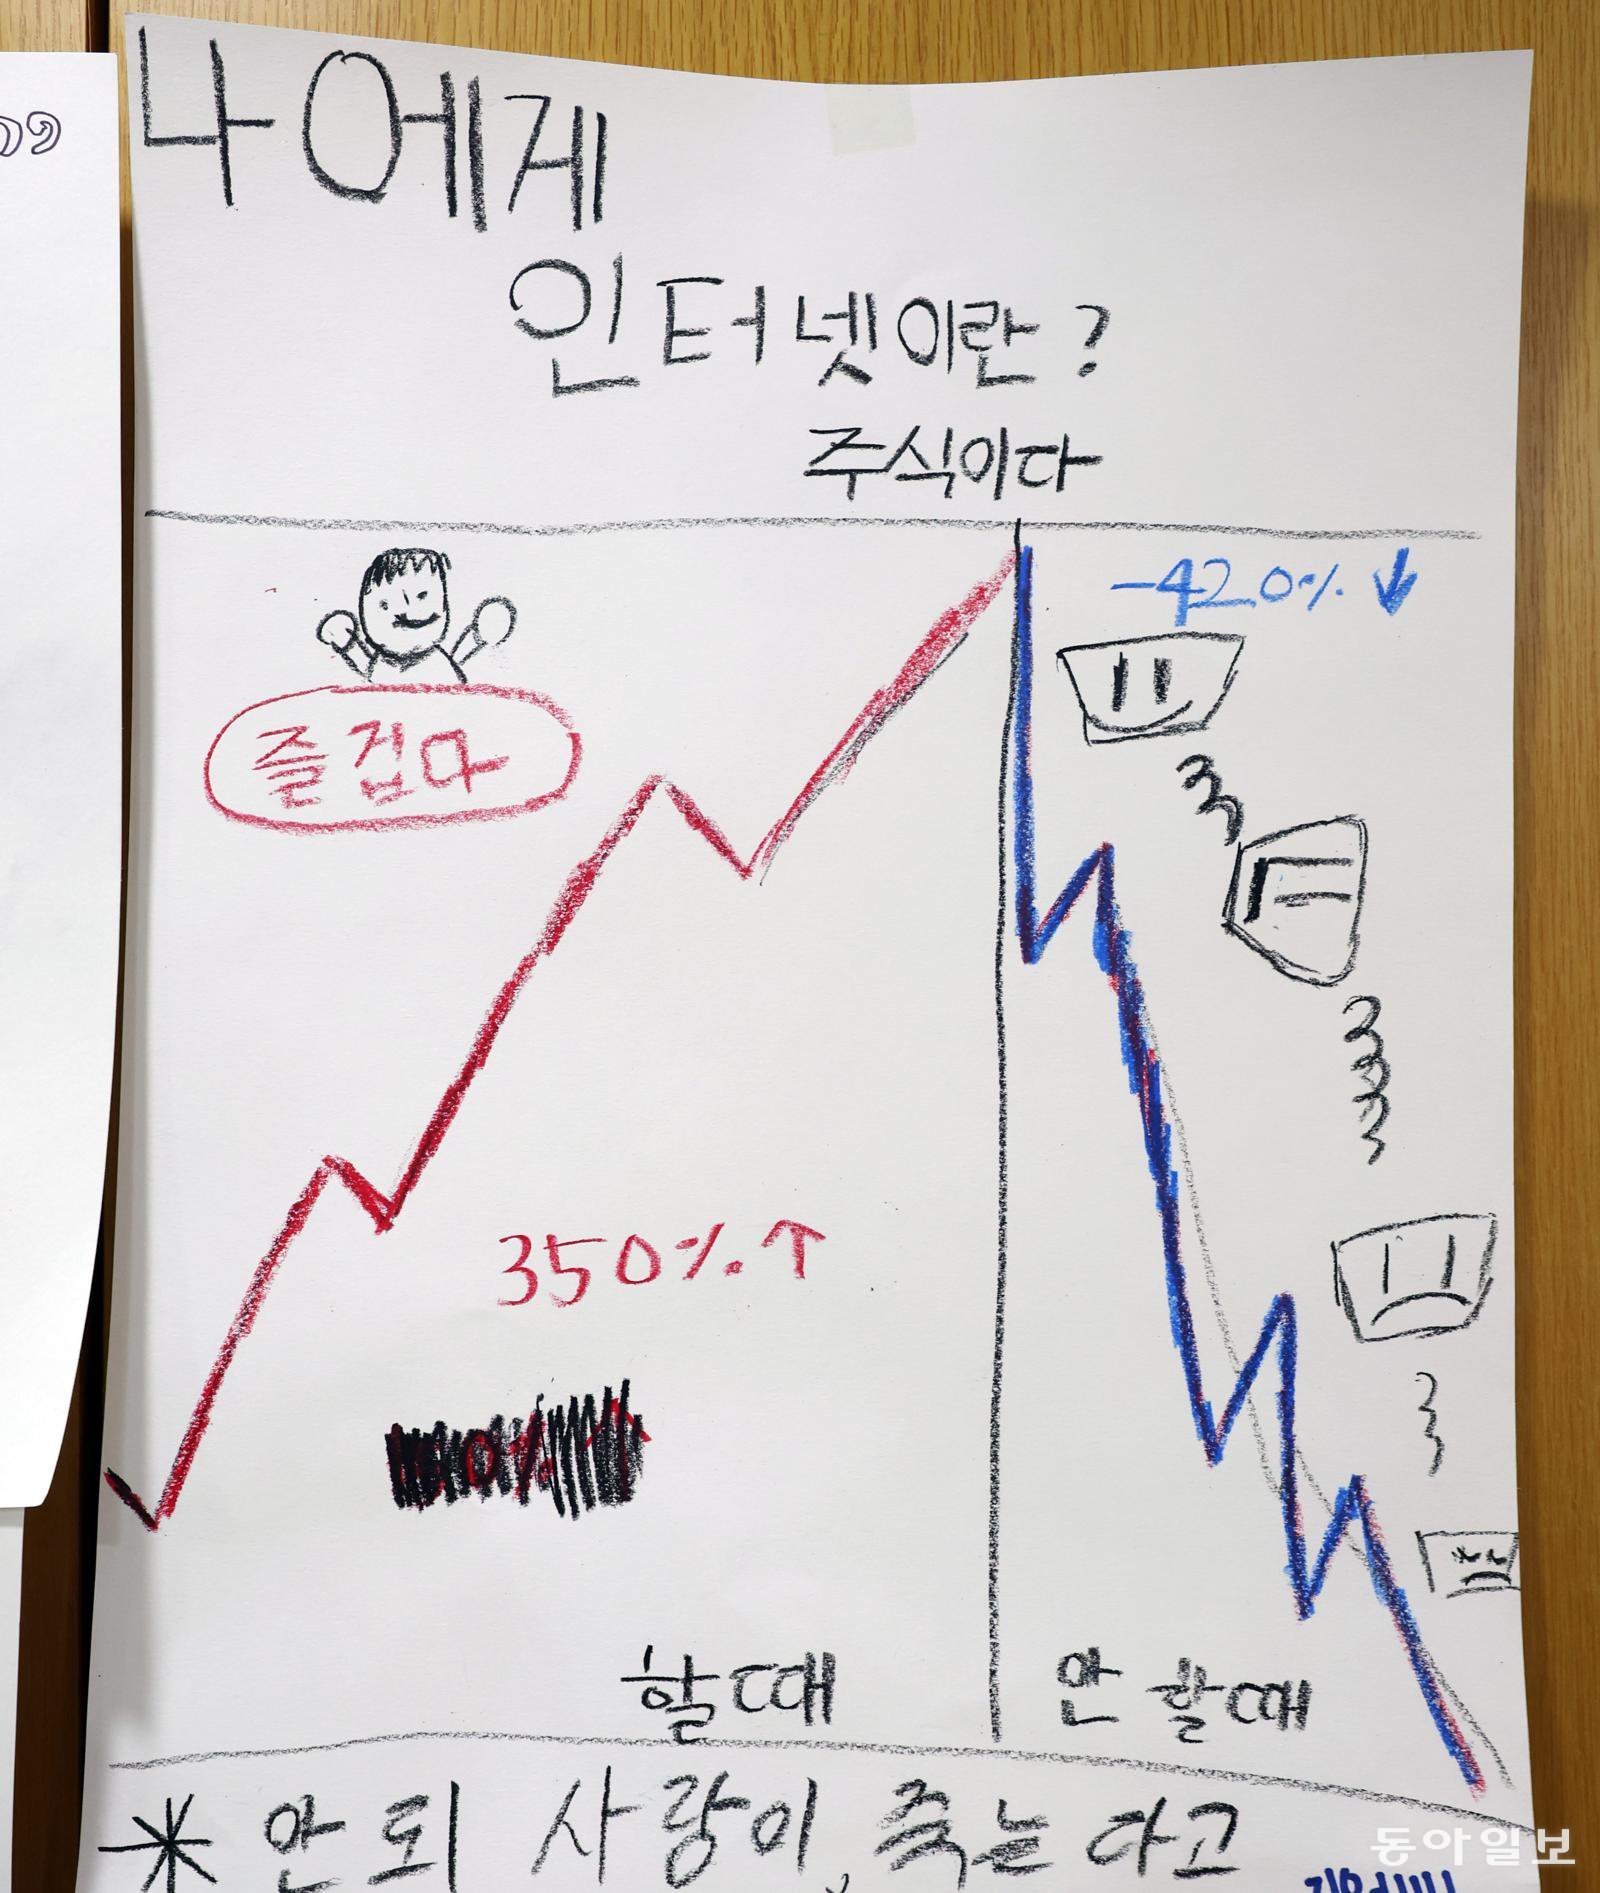 나에게
인터넷이란?
주식이다
-420% ↓
즐겁다
350%.↑
할때
안 할때
* 안 되 사랑이, 죽는다고
동아일보